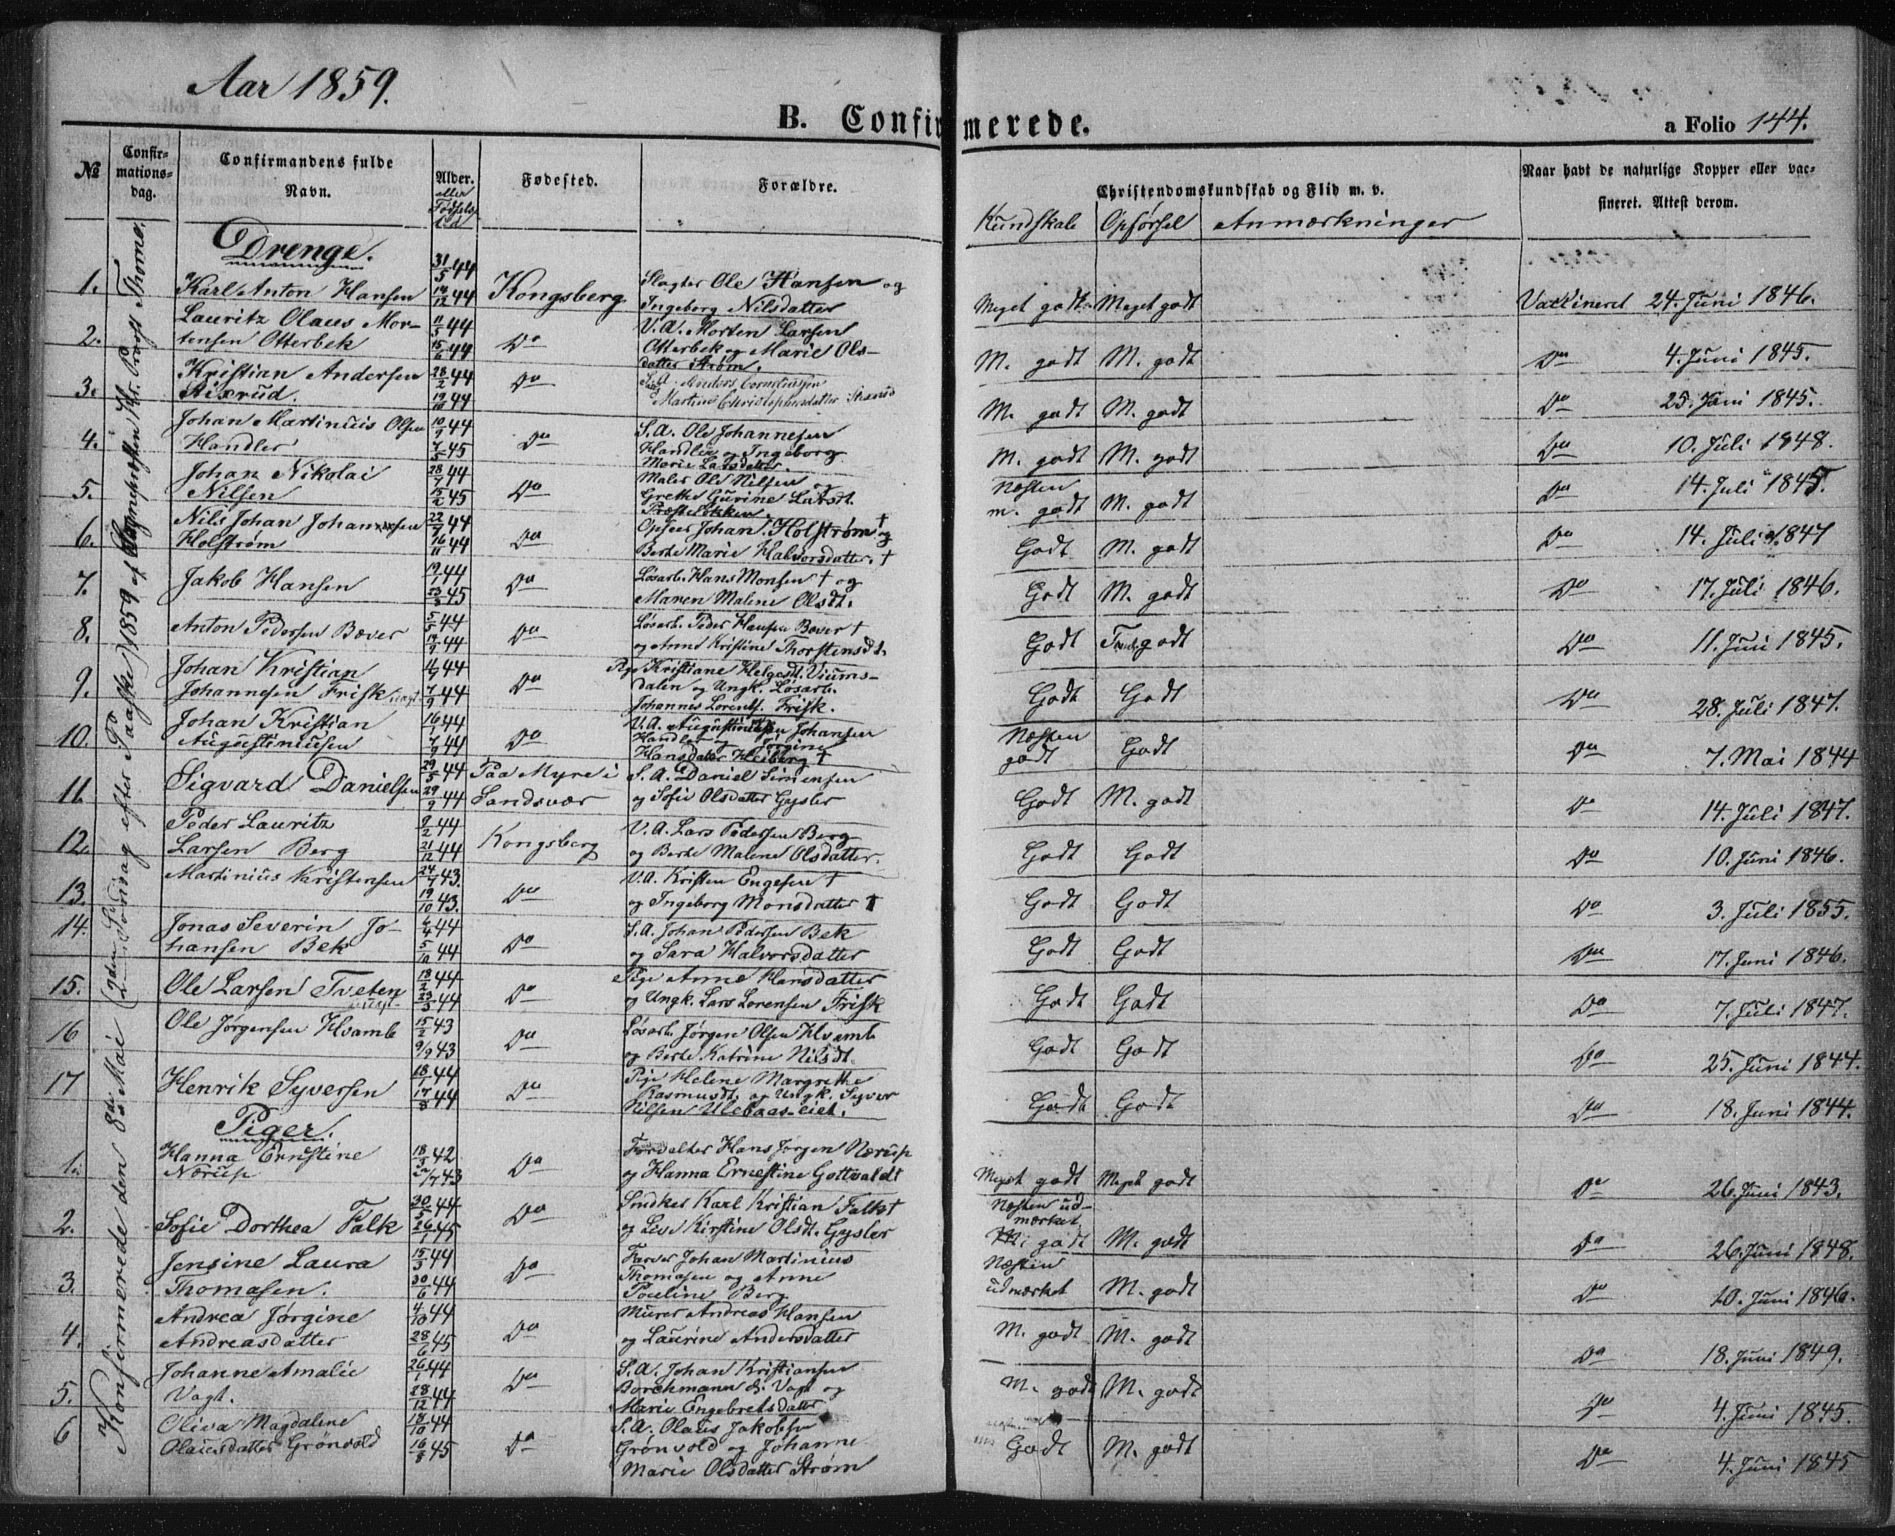 Aar 1859.
B. Confirmerede.
a Folio 144.
№
Confir-
mations-
dag.
Confirmandens fulde
Navn.
Alder.
eller
Fødsels
Fødested.
Forældre.
Christendomskundskab og Flid m. v.
Kundskab Opførsel Anmærkninger
Naar havt de naturlige Kopper eller vac-
sineret. Attest derom.
Konfirmerede den 8de Mai (2den Søndag efter Paaske) 1859 af Sogneprosten Kr. Provst Thome.
Drenge.
1. Karl Anton Hansen 31/5 44 14/12 44 Kongsberg Slagter Ole Hansen og
Ingeborg Nilsdatter Meget godt Meget godt Vaccineret 24. Juni 1846.
2. Lauritz Olaus Mor-
tensen Otterbek 11/5 44 15/6 44 Do V.A. Morten Larsen
Otterbek og Marie Ols-
datter Strøm. M. godt M. godt Do 4. Juni 1845.
3. Kristian Andersen
28/2 44 19/10 44 Do S.A. Anders Corneliussen
Martine Christophersdatter M. godt M. godt Do 25. Juni 1845.
4. Johan Martinius Olsen
Handler 10/9 44 7/5 45 Do S.A. Ole Johannesen
Handler og Ingeborg
Marie Larsdatter. M. godt M. godt Do 10. Juli 1848.
5. Johan Nikolai
Nilsen 28/7 44 15/2 45 Do Maler Ole Nilsen og
Grethe Gurine Larsdt.
Præsteløkken. Næsten
m. godt M. godt Do 14. Juli 1845.
6. Nils Johan Johannesen
Holstrøm 22/7 44 16/11 44 Do Opseer Johan Holstrøm † og
Berte Marie Halvorsdatter. † Godt M. godt Do 14. Juli 1847
7. Jakob Hansen 19/1 44 23/3 45 Do Løsarb. Hans Monsen † og
Maren Malene Olsdt. Godt M. godt Do 17. Juli 1846.
8. Anton Pedersen Bæver 5/5 44 19/9 44 Do Løsarb. Peder Hansen Bæver †
og Anne Kristine Thorstensdt. Godt godt Do 11. Juni 1845.
9. Johan Kristian
Johannesen Frisk 4/9 44 7/9 44 Do Pige Kristiane Helgesdt. Viums-
dalen og Ungk. Løsarb.
Johannes Lorents. Frisk. Godt Godt Do 28. Juli 1847.
10. Johan Kristian
Augustiniusen 16/1 44 7/9 44 Do V.A. Augustiniusen Johansen
Handler og Jørgine
Hansdatter Heiberg † Næsten
godt Godt Do 7. Mai 1844
11. Sigvard Danielsen 29/5 44 29/9 44 Paa Myre i
Sandsvær S.A. Daniel Simensen
og Sofie Olsdatter Gysler Godt M. godt Do 14. Juli 1847.
12. Peder Lauritz
Larsen Berg 9/2 44 21/12 44 Kongsberg V.A. Lars Pedersen Berg
og Berte Malene Olsdatter. Godt Godt Do 10. Juni 1846.
13. Martinius Kristensen 24/7 43. 19/10 43. Do V.A. Kristen Engesen †
og Ingeborg Monsdatter † Godt Godt Do 3. Juli 1855.
14. Jonas Severin Jo-
hansen Bek 6/4 44 5/10 44 Do S.A. Johan Pedersen Bek
og Sara Halvorsdatter Godt Godt Do 17. Juni 1846.
15. Ole Larsen Tveten 18/2 44 23/3 44 Do Pige Anne Hansdatter
og Ungk. Lars Lorensen Frisk Godt Godt Do 7. Juli 1847.
16 Ole Jørgensen Hvamb 15/2 43 9/9 43 Do Løsarb. Jørgen Olsen Hvamb
og Berte Katrine Nilsdt. Godt Godt Do 25. Juni 1844.
17 Henrik Syversen 18/1 44 17/8 44 Do Pige Helene Margrethe
Rasmusdt. og Ungk. Syver
Nilsen Ulebaas-eiet. Godt Godt Do 18. Juni 1844.
Piger.
1. Hanna Ernstine
Nørup 18/5 42 2/7 43 Do Forvalter Hans Jørgen Nørup
og Hanna Ernestine Gottvaldt Meget godt Meget godt Do 26. Juni 1843.
2. Sofie Dorthea Falk 30/5 44 26/1 45 Do Snedker Karl Kristian Falk †
og Live Kirstine Olsdt. Gysler Næsten ud-
mærket
M. godt M. godt Do 26. Juni 1848.
3. Jensine Laura
Thomasen. 15/3 44 30/6 44 Do Farver Johan Martinius
Thomasen og Anne
Pauline Berg Næsten
udmærket M. godt Do 10. Juni 1846.
4. Andrea Jørgine
Andreasdatter 4/10 44 28/6 45 Do Murer Andreas Hansen
og Laurine Andersdatter M. godt M. godt Do 18. Juni 1849.
5. Johanne Amalie
Vagt. 26/1 44 28/12 44 Do S.A. Johan Kristiansen
Borchmann d. Vagt og
Marie Engebretsdatter M. godt M. godt Do 4. Juni 1845.
6 Oliva Magdalene
Olausdatter Grønvold 18/10 44 16/3 45 Do S.A. Olaus Jakobsen
Grønvold og Johanne
Marie Olsdatter Strøm Godt M. godt Do 4. Juni 1845